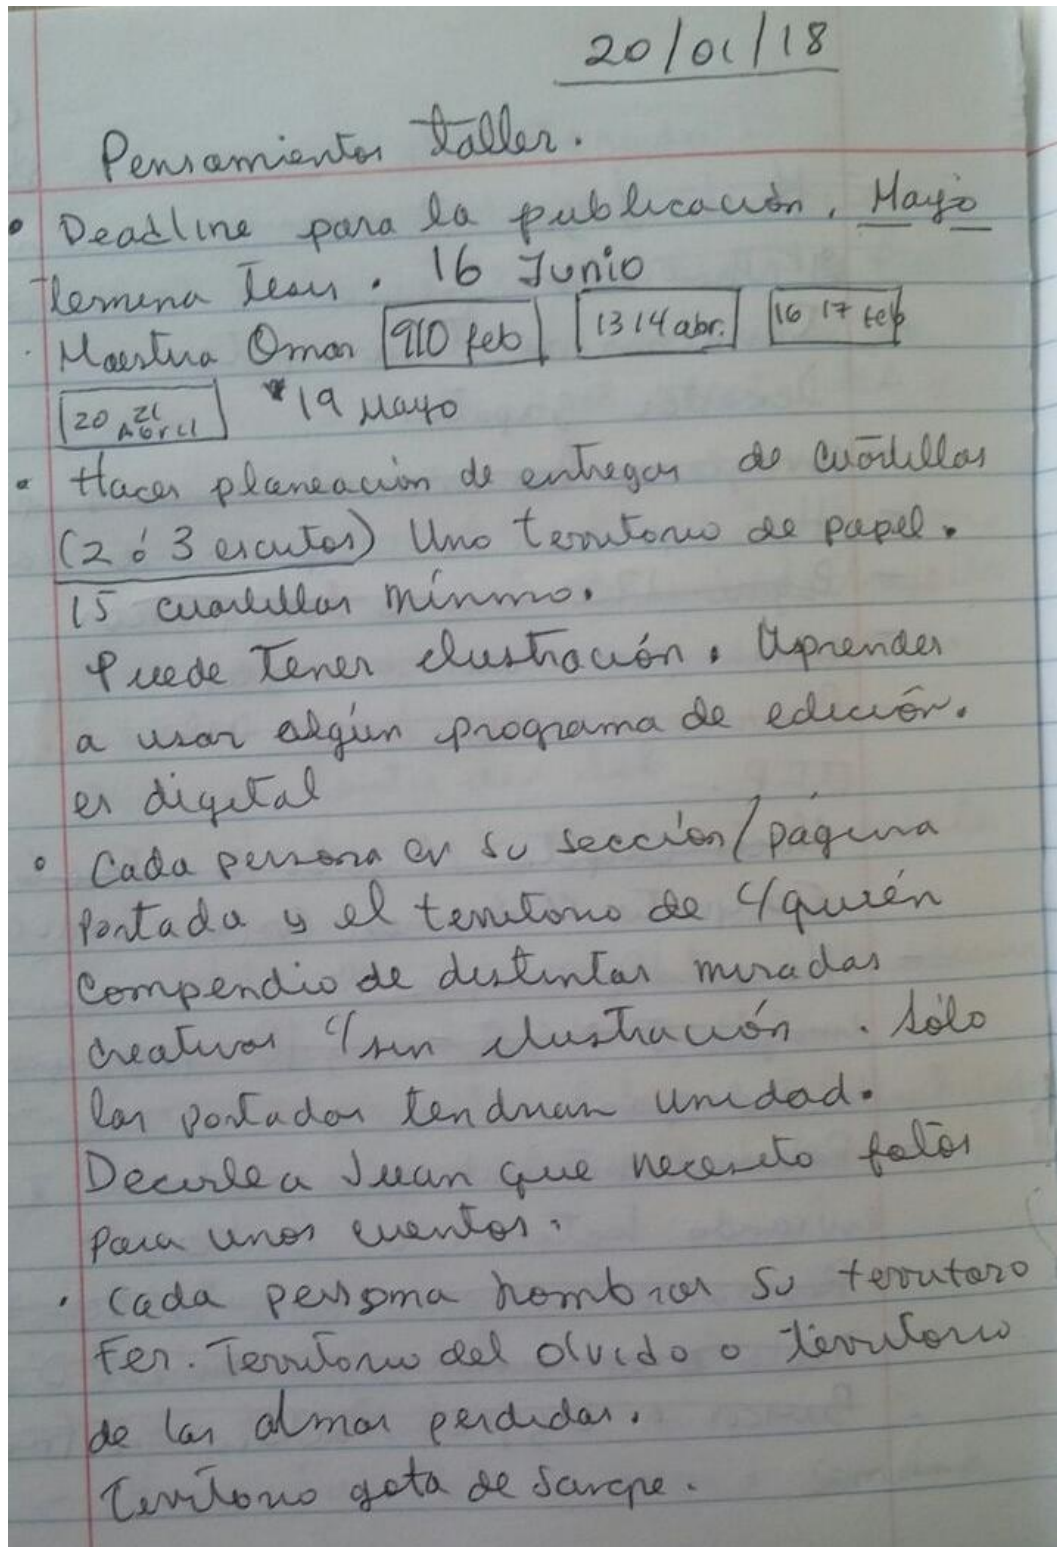 20/01/18
Pensamientos taller.
Deadline para la publicación, Mayo
Termina Tesis. 16 Junio
Maestria Omar 910 feb 13 14 abr. 16 17 feb
20 21 Abril *19 Mayo
Hacer planeación de entregas de cuartillas
(2 ó 3 escritos) Uno territorio de papel.
15 cuartillas mínmo.
Puede Tener ilustración. Aprender
a usar algún programa de edición.
es digital
Cada persona en su sección/página
Portada y el territorio de c/quién
Compendio de distintas miradas
creativas c/sin ilustración. Sólo
las portadas tendrian unidad.
Decirle a Juan que necesito fotos
para unos cuentos.
Cada persona nombrar su territoro
Fer. Territorio del olvido o territorio
de las almas perdidas.
Territorio gota de sangre.